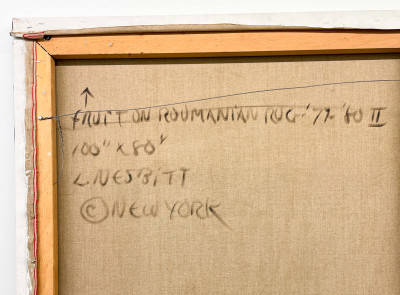 FRUIT ON ROUMANIAN RUG-'79-'80 II
100" x 80"
L. NESBITT
© NEW YORK